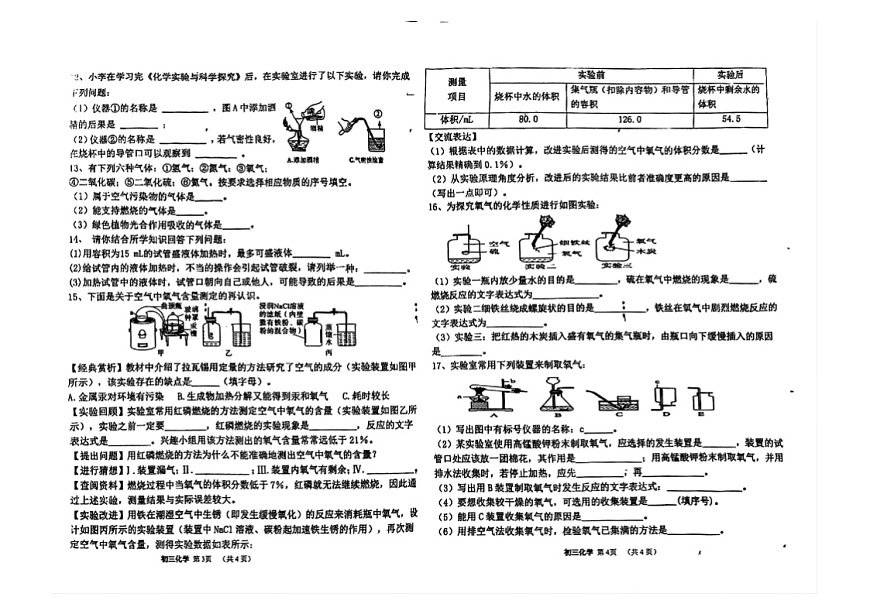 2、小李在学习完《化学实验与科学探究》后，在实验室进行了以下实验，请你完成
下列问题：
（1）仪器①的名称是 ________ ，图A中添加酒
精的后果是 ________ ；
（2）仪器②的名称是 ________ ，若气密性良好，
在烧杯中的导管口可以观察到 ________ 。
① 酒精 ②
A.添加酒精 C.气密性检查
13、有下列六种气体：①氢气；②氮气；③氧气；
④二氧化碳；⑤二氧化硫；⑥氦气。按要求选择相应物质的序号填空。
（1）属于空气污染物的气体是______。
（2）能支持燃烧的气体是______。
（3）绿色植物光合作用吸收的气体是______。
14、 请你结合所学知识回答下列问题：
(1)用容积为15 mL的试管盛液体加热时，最多可盛液体________ mL。
(2)给试管内的液体加热时，不当的操作会引起试管破裂，请列举一种：________。
(3)加热试管中的液体时，试管口朝向自己或他人，可能导致的后果是________。
15、下面是关于空气中氧气含量测定的再认识。
曲颈甑 玻璃钟罩 汞槽
浸润NaCl溶液的滤纸（内壁敷有铁粉、碳粉的混合物）
蒸馏水
甲 乙 丙
【经典赏析】教材中介绍了拉瓦锡用定量的方法研究了空气的成分（实验装置如图甲
所示），该实验存在的缺点是______（填字母）。
A.金属汞对环境有污染 B.生成物加热分解又能得到汞和氧气 C.耗时较长
【实验回顾】实验室常用红磷燃烧的方法测定空气中氧气的含量（实验装置如图乙所
示），实验之前一定要________，红磷燃烧的实验现象是________，反应的文字
表达式是________。兴趣小组用该方法测出的氧气含量常常远低于21%。
【提出问题】用红磷燃烧的方法为什么不能准确地测出空气中氧气的含量？
【进行猜想】Ⅰ.装置漏气；Ⅱ.________；Ⅲ.装置内氧气有剩余；Ⅳ.________，
【查阅资料】燃烧过程中当氧气的体积分数低于7%，红磷就无法继续燃烧，因此通
过上述实验，测量结果与实际误差较大。
【实验改进】用铁在潮湿空气中生锈（即发生缓慢氧化）的反应来消耗瓶中氧气，设
计如图丙所示的实验装置（装置中NaCl 溶液、碳粉起加速铁生锈的作用），再次测
定空气中氧气含量，测得实验数据如表所示：
初三化学 第3页 （共4页）
测量项目 实验前 实验后
烧杯中水的体积 集气瓶（扣除内容物）和导管的容积 烧杯中剩余水的体积
体积/mL 80.0 126.0 54.5
【交流表达】
（1）根据表中的数据计算，改进实验后测得的空气中氧气的体积分数是______（计
算结果精确到0.1%）。
（2）从实验原理角度分析，改进后的实验结果比前者准确度更高的原因是________
（写出一点即可）。
16、为探究氧气的化学性质进行如图实验：
空气 硫 细铁丝 氧气 氧气 木炭
实验一 实验二 实验三
（1）实验一瓶内放少量水的目的是________，硫在氧气中燃烧的现象是______，硫
燃烧反应的文字表达式为____________。
（2）实验二细铁丝绕成螺旋状的目的是__________，铁丝在氧气中剧烈燃烧反应的
文字表达式为____________。
（3）实验三：把红热的木炭插入盛有氧气的集气瓶时，由瓶口向下缓慢插入的原因
是________。
17、实验室常用下列装置来制取氧气：
a b c
A B C D E
（1）写出图中有标号仪器的名称：c______。
（2）某实验室使用高锰酸钾粉末制取氧气，应选择的发生装置是______，装置的试
管口处应该放一团棉花，其作用是____________；用高锰酸钾粉末制取氧气，并用
排水法收集时，若停止加热，应先________；再____________。
（3）写出用 B 装置制取氧气时发生反应的文字表达式：______________。
（4）要想收集较干燥的氧气，可选用的收集装置是______(填序号)。
（5）能用 C 装置收集氧气的原因是____________。
（6）用排空气法收集氧气时，检验氧气已集满的方法是__________。
初三化学 第4页 （共4页）